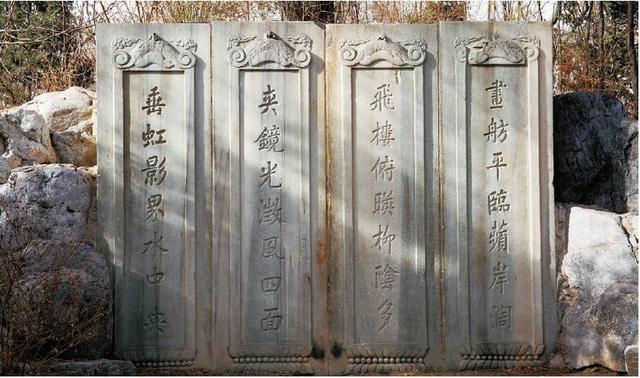 畫舫平臨蘋岸濶
飛樓俯暎柳陰多
夾鏡光澂風四面
垂虹影界水中央